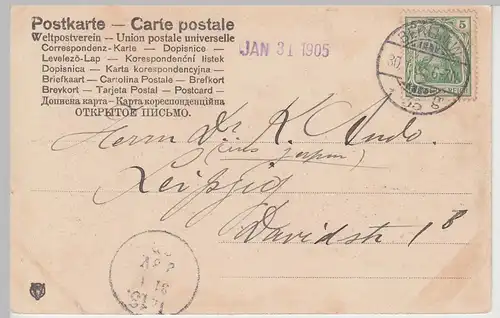 Postkarte — Carte postale
Weltpostverein — Union postale universelle
Correspondenz-Karte — Dopisnice —
Levelező-Lap — Korespondenční lístek
Dopisnica — Karta korespondencyjna —
Briefkaart — Cartolina Postale — Brefkort
Brevkort — Tarjeta Postal — Postcard —
Дописна карта — Карта кореспонденційна
ОТКРЫТОЕ ПИСЬМО.
JAN 31 1905
5
BERLIN
Herrn Dr. K. Ando.
(aus Japan)
Leipzig
Davidstr 1 B